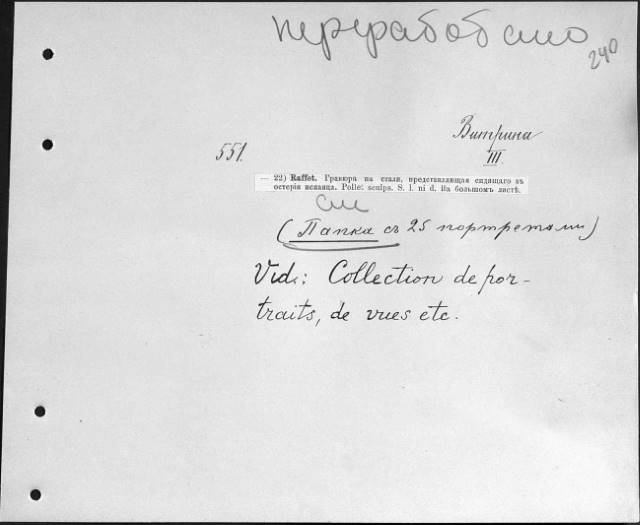 переработано
240
Витрина
III.
551.
— 22) Raffet. Гравюра на стали, представляющая сидящаго въ
остеріи испанца. Pollet sculps. S. l. ni d. На большомъ листѣ.
см
(Папка съ 25 портретами)
Vide: Collection de por-
traits, de vues etc.